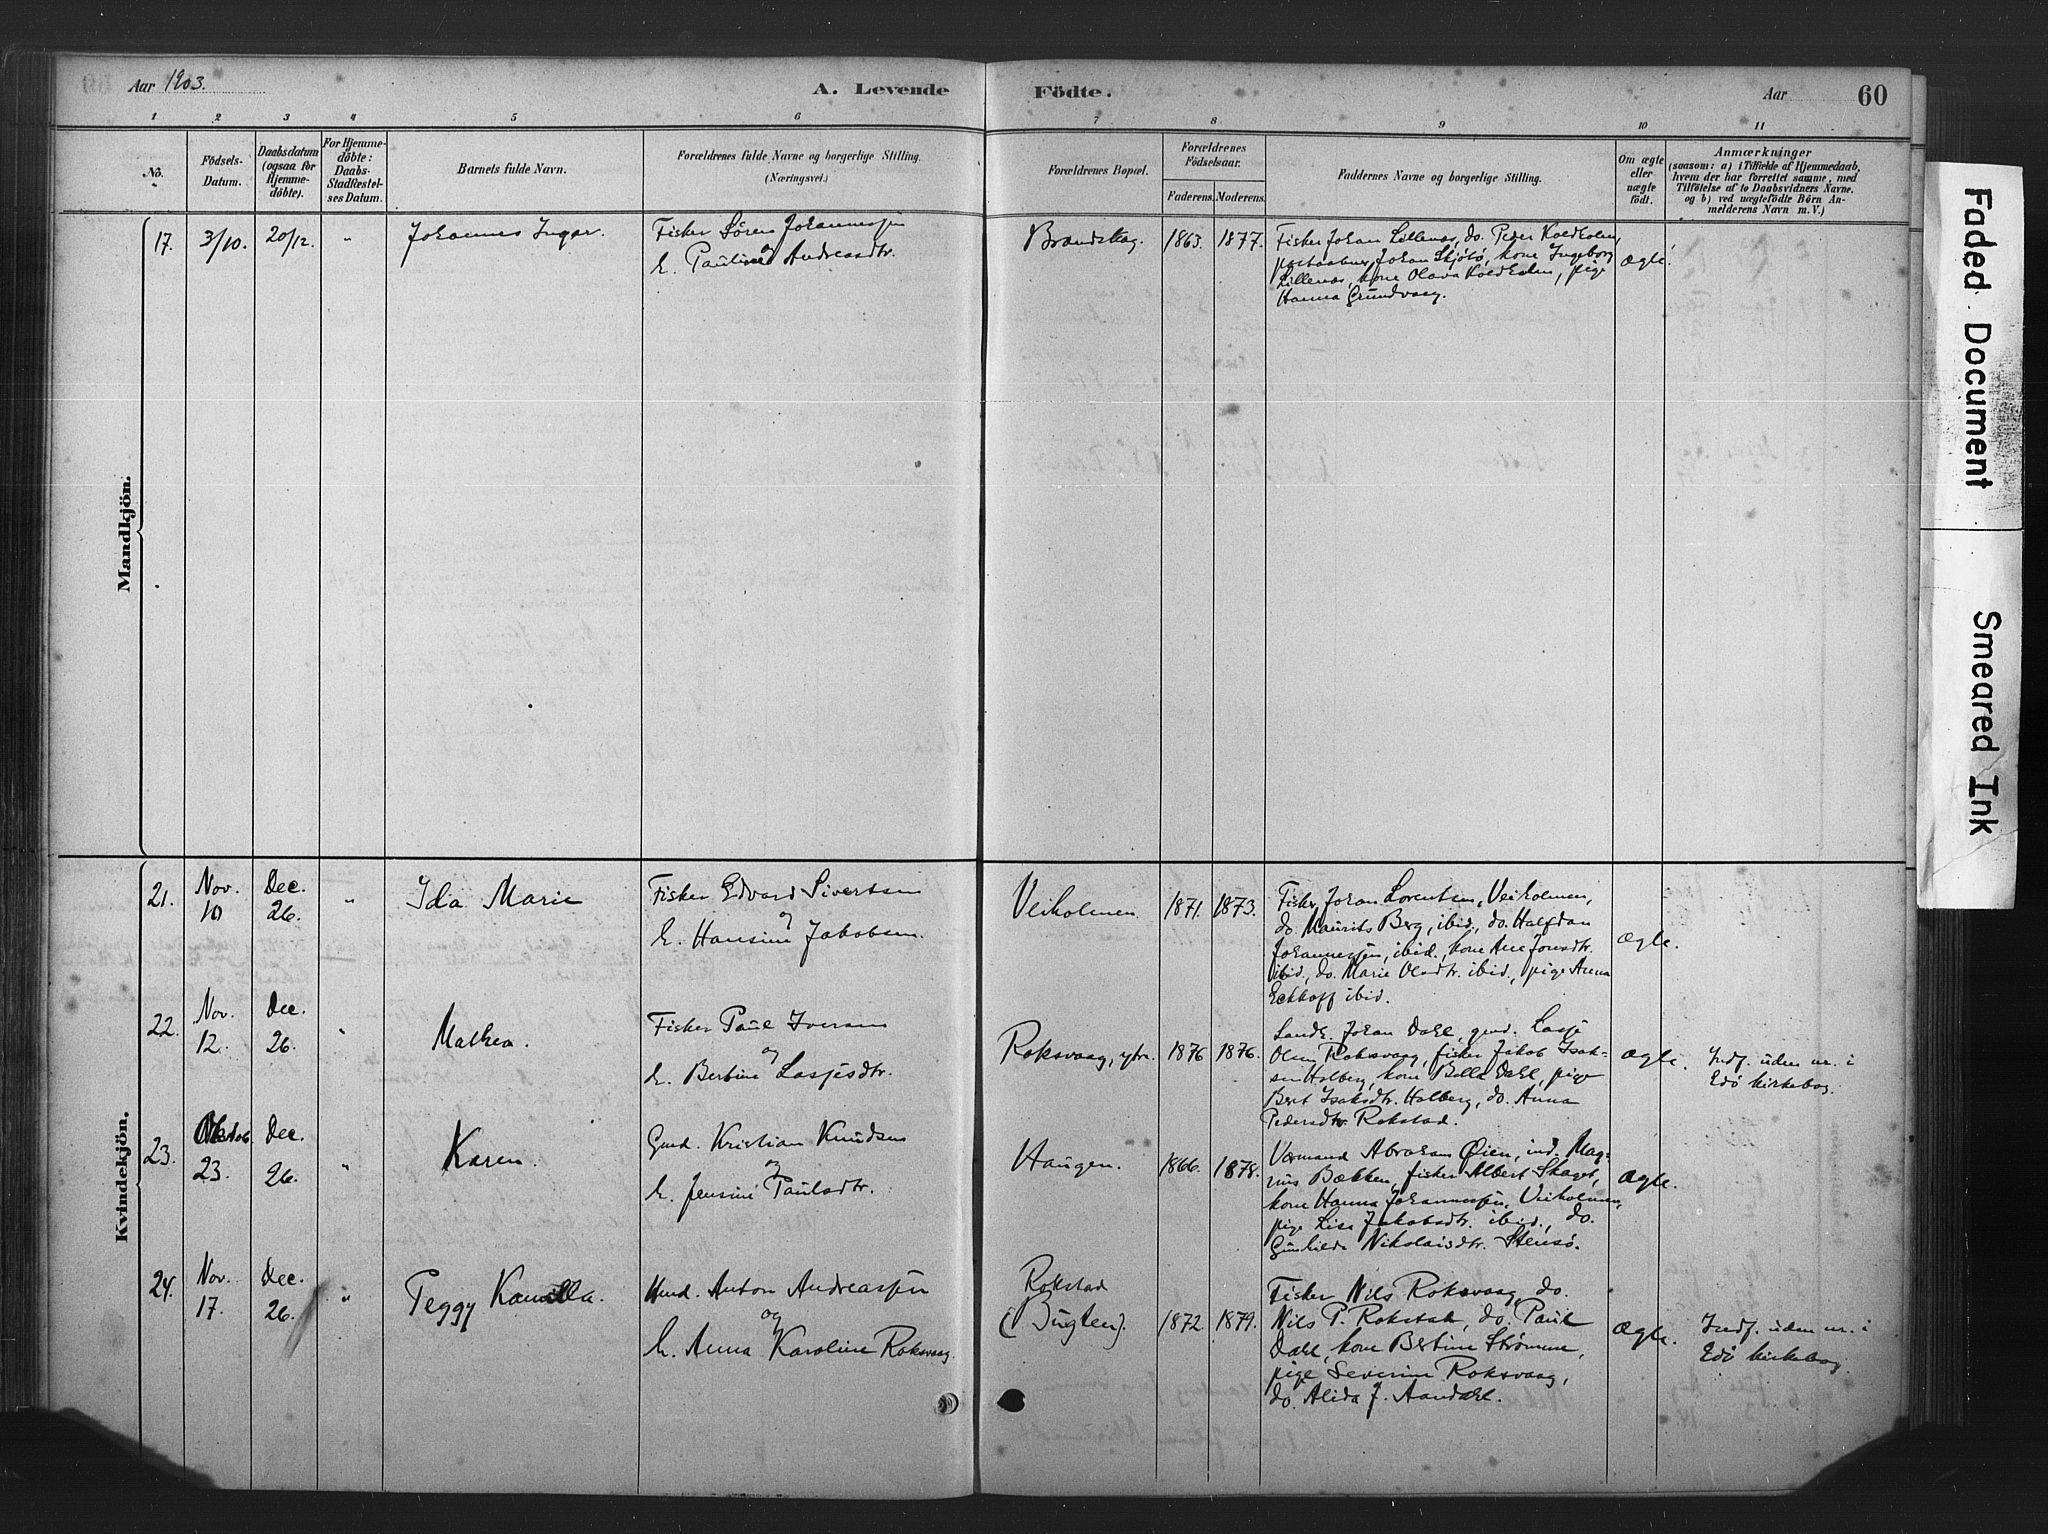 Aar 1903.
A. Levende Födte.
Aar
60
1 2 3 4 5 6 7 8 9 10 11
No.
Födsels-
Datum.
Daabsdatum
(ogsaa for
Hjemme-
döbte).
For Hjemme-
döbte:
Daabs-
Stadfæstel-
ses Datum.
Barnets fulde Navn.
Forældrenes fulde Navne og borgerlige Stilling.
(Næringsvei.)
Forældrenes Bopæl.
Forældrenes
Födselsaar.
Faderens. Moderens.
Faddernes Navne og borgerlige Stilling.
Om ægte
eller
uægte
födt.
Anmærkninger
(saasom: a) i Tilfælde af Hjemmedaab,
hvem der har forrettet samme, med
Tilföielse af to Daabsvidners Navne.
og b) ved uægtefödte Börn An-
melderens Navn m. V.)
Mandkjön.
17. 3/10. 20/12. " Johannes Ingar.
Fisker Sören Johannessen
og
h. Pauline Andreasdtr.
Brandskag. 1863. 1877.
Fisker Johan Lillenas, do. Peder Koldholm,
postaabner Johan Skjölö, kone Ingeborg
Lillenas, kone Olava Koldholm, pige
Hanna Grundvaag.
ægte.
Kvindekjön.
21. Nov. 10 Dec. 26. " Ida Marie
Fisker Edvard Sivertsen
og
h. Hansine Jakobsen.
Veiholmen 1871. 1873.
Fisker Johan Lorentsen, Veiholmen,
do. Maurits Berg, ibid., do. Halfdan
Johannessen, ibid., kone Ane Jonsdtr.
ibid., do. Marie Olsdtr. ibid., pige Anna
Eckhoff ibid.
ægte.
22. Nov. 12. Dec. 26. " Mathea.
Fisker Paul Iversen
og
h. Bertine Lassesdtr.
Roksvaag, ytre. 1876 1876.
Landh. Johan Dahl, gmd. Lasse
Olsen Roksvaag, fisker Jakob Isak-
sen Holberg, kone Bella Dahl, pige
Berit Isaksdtr. Holberg, do. Anna
Pedersdtr. Rokstad.
ægte.
Indf. uden nr. i
Edö kirkebog.
23. Oktob 23. Dec. 26. " Karen.
Gmd. Kristian Knudsen
og
h. Jensine Paulsdtr.
Haugen. 1866. 1878.
Vermand Abraham Øien, ind. Mag-
nus Bækken, fisker Albert Skaget,
kone Hanna Johannessen, Veiholmen,
pige Lise Jakobsdtr. ibid., do.
Gunhilde Nikolaisdtr. Stensö.
ægte.
24. Nov. 17. Dec. 26. " Peggy Kamilla.
Hmd. Anton Andreassen
og
h. Anna Karoline Roksvaag.
Rokstad
(Bugten). 1872. 1879.
Fisker Nils Roksvaag, do.
Nils P. Rokstad, do. Paul
Dahl, kone Bertine Strömme,
pige Severine Roksvaag,
do. Alida J. Aandahl.
ægte.
Indf. uden nr. i
Edö kirkebog.
Faded Document
Smeared Ink